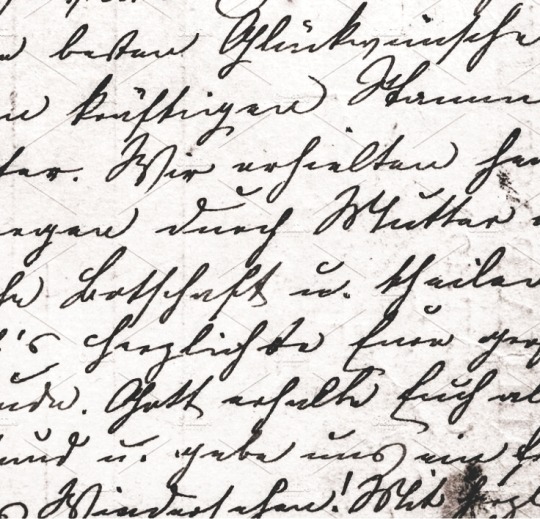 besten Glückwünsche
kräftigen Stamm
ter. Wir erhielten heu
egen durch Mutter
he Botschaft u. theilen
's herzlichste Eure
ude. Gott erhalte Euch al
und u. gebe uns ein
Wiedersehen! Mit